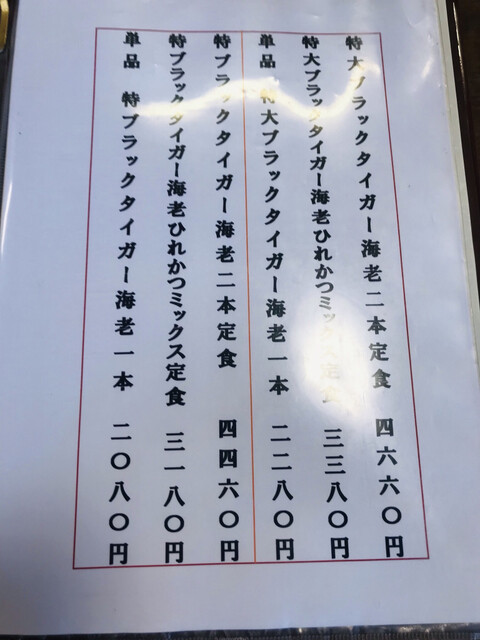 特大ブラックタイガー海老二本定食　四六六〇円
特大ブラックタイガー海老ひれかつミックス定食　三三八〇円
単品　特大ブラックタイガー海老一本　二二八〇円
特ブラックタイガー海老二本定食　四四六〇円
特ブラックタイガー海老ひれかつミックス定食　三一八〇円
単品　特ブラックタイガー海老一本　二〇八〇円